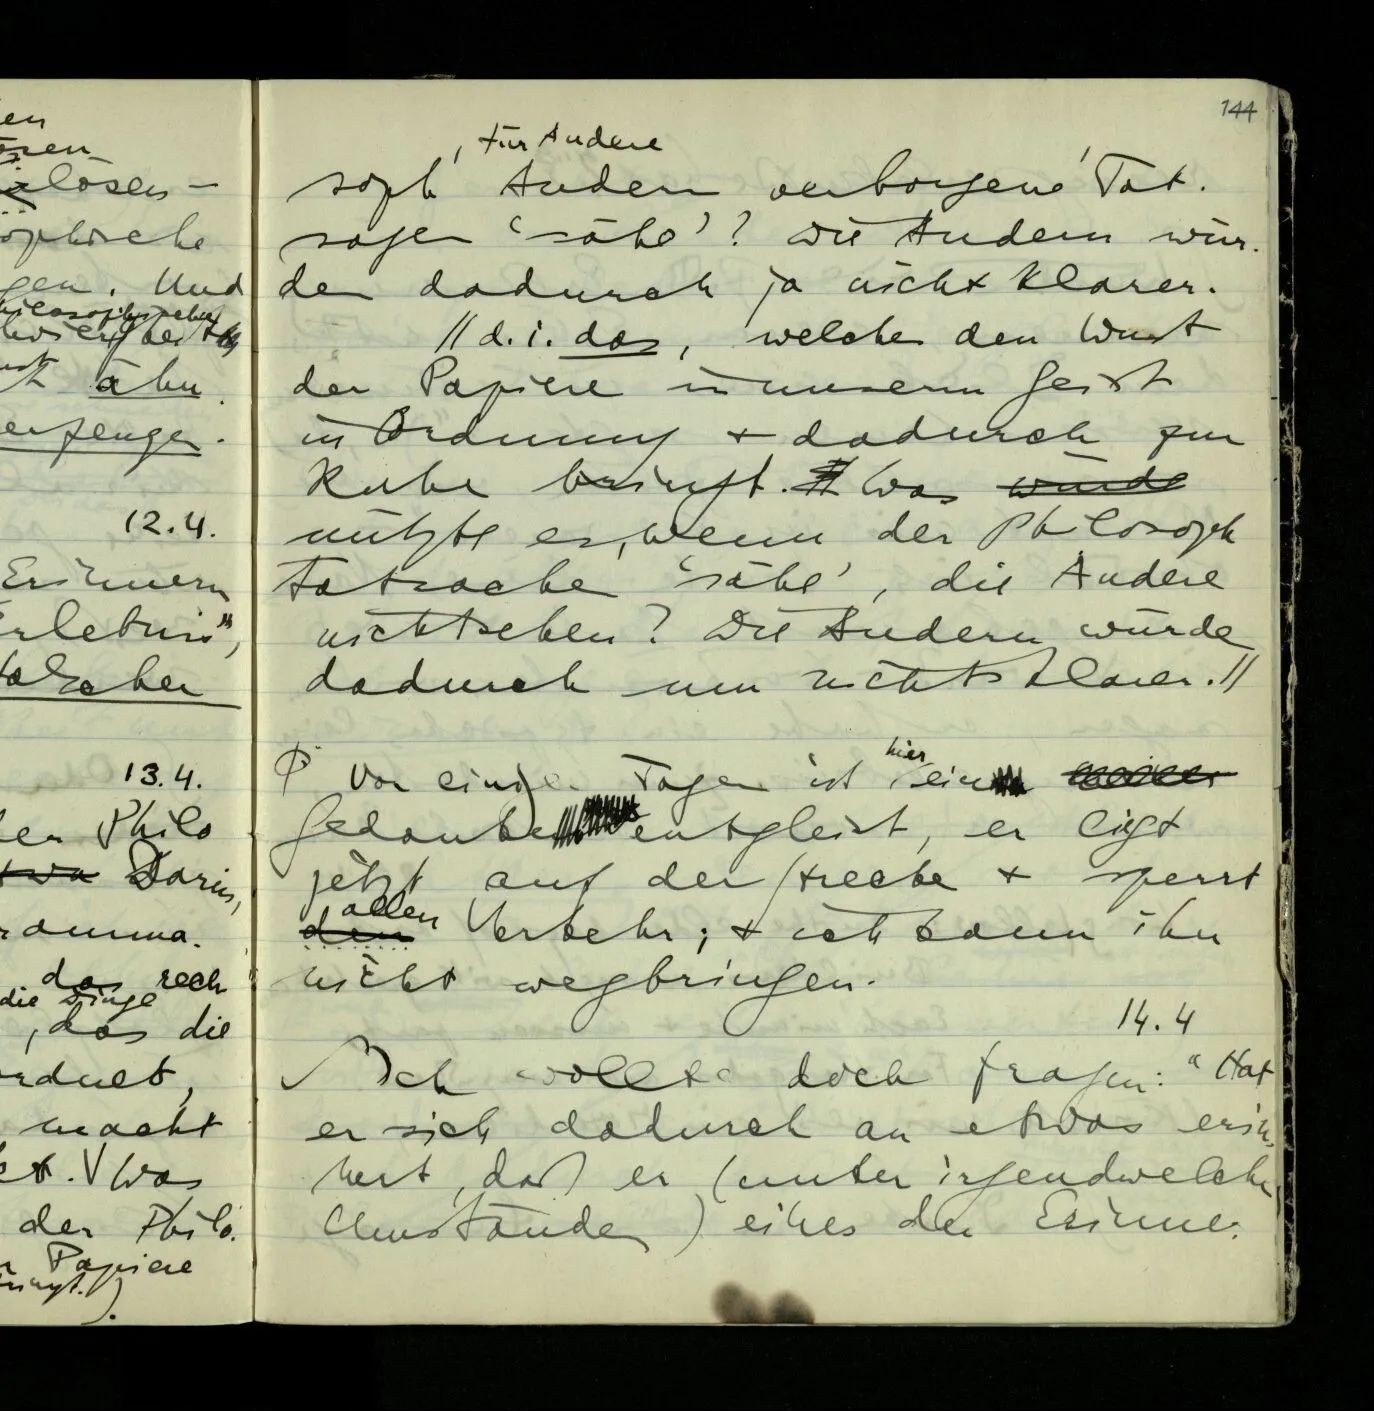 en
ösen
lösen –
ophische
gen. Und
philosophischen
ähn
erzeugen.
12.4.
Erinnern
Erlebnis",
13.4.
der Philo
etwa Darius,
ramma.
das rech
die Dinge
, das die
ordnet,
macht
Was
der Philo.
Papiere
bringt.).
144
, für Andere
soph Andern verborgene Tat-
sagen 'sähe'? Die Andern wür-
den dadurch ja nicht klarer.
// d.i. das, welches den Wust
der Papiere in unserm Geist
in Ordnung + dadurch zur
Ruhe bringt. Was würde
nützte es, wenn der Philosoph
Tatsachen 'sähe', die Andere
nicht sehen? Die Andern würden
dadurch um nichts klarer. //
hier
Φ Vor einigen Tagen ist ein meiner
Gedanke entgleist, er liegt
jetzt auf der Strecke + sperrt
allen
den Verkehr; + ich kann ihn
nicht wegbringen.
14.4
Ich wollte doch fragen: "Hat
er sich dadurch an etwas erin-
nert, daß er (unter irgendwelchen
Umständen) eines der Erinne-